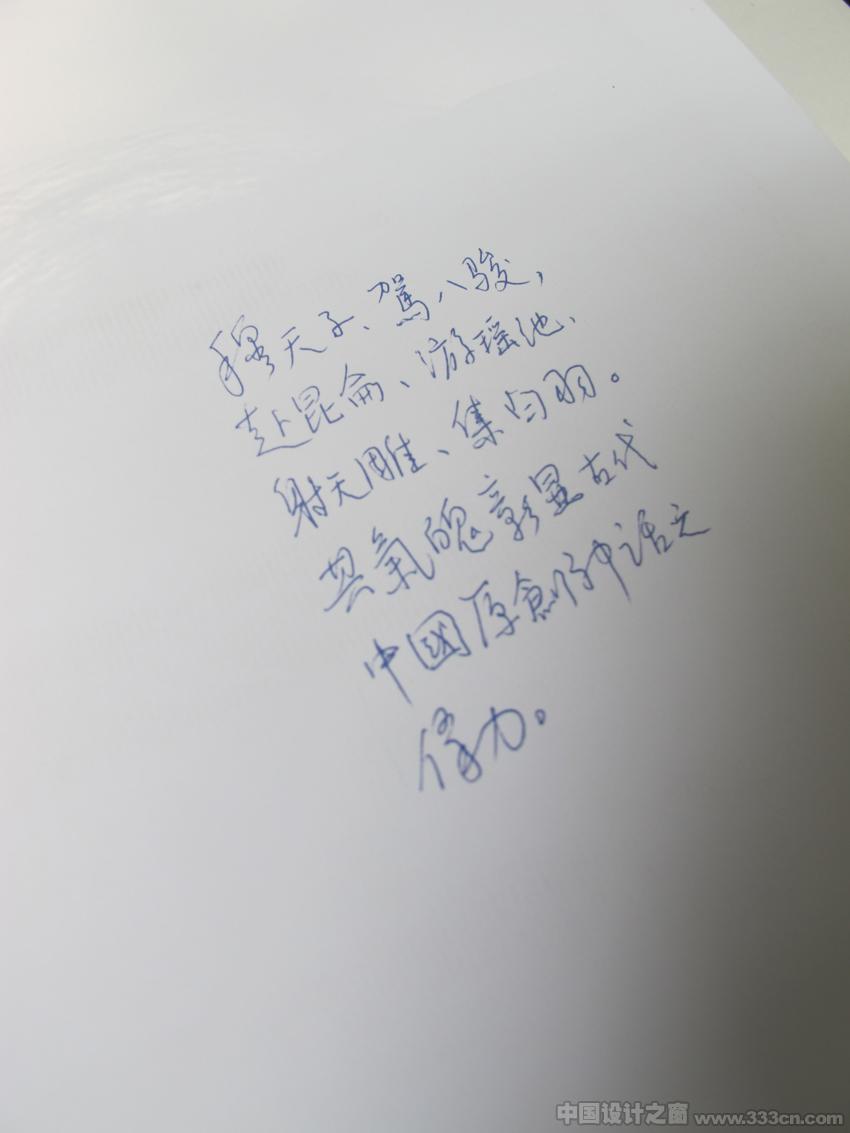 穆天子、駕八駿，
赴昆侖、游瑶池、
射天雕、集白羽。
其氣魄彰显古代
中國原創神话之
偉力。
中国设计之窗 www.333cn.com